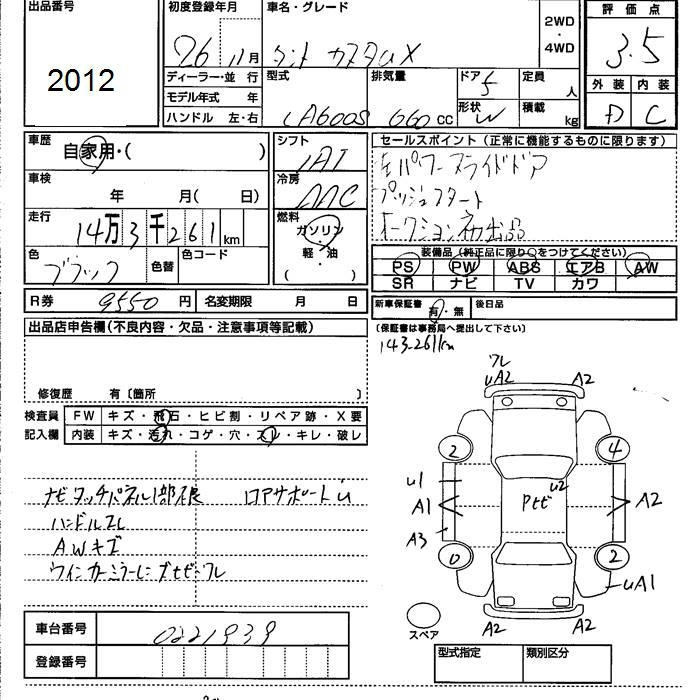 出品番号
2012
初度登録年月
26 11月
車名・グレード
タント カスタムX
2WD
・
4WD
評価点
3.5
外装 内装
D C
ディーラー・並行
モデル年式 年
ハンドル 左・右
型式
LA600S
排気量
660 cc
ドア 5
形状 W
定員 人
積載 kg
車歴
自家用・( )
シフト
IAT
車検
年 月( 日)
冷房
AAC
走行
14万3千261km
燃料
ガソリン
・
軽・油
( )
色
ブラック
色替
色コード
セールスポイント (正常に機能するものに限ります)
左パワースライドドア
プッシュスタート
オークション初出品
装備品(純正品に限り○をつけてください)
PS PW ABS エアB AW
SR ナビ TV カワ
R券 9550円 名変期限 月 日
新車保証書 有・無 後日品
(保証書は事務局へ提出して下さい)
143.261km
出品店申告欄(不良内容・欠品・注意事項等記載)
修復歴 有〔箇所 〕
検査員 FW キズ・飛石・ヒビ割・リペア跡・X要
記入欄 内装 キズ・汚れ・コゲ・穴・スレ・キレ・破レ
ナビタッチパネル1部不良 ロアサポートU
ハンドルスレ
AWキズ
ワレ
UA2
A2
2
4
U1
U2
A1
Pｾﾋﾞ
A2
A3
0
2
UA1
A2
A2
スペア
車台番号 0221939
登録番号
型式指定 類別区分